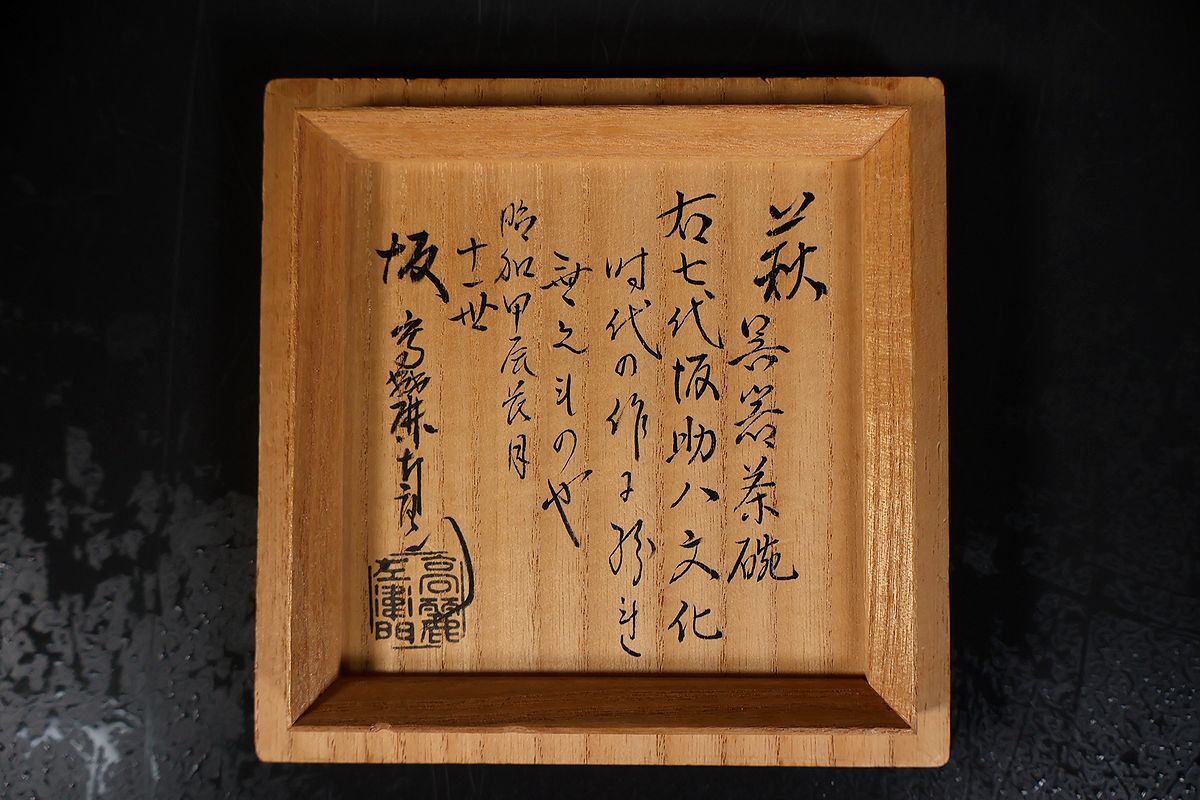 萩
呉器茶碗
右七代坂助八文化
時代の作に紛も
無之もの也
昭和甲辰花月
十一世
坂高麗左衛門
高麗
左衛門